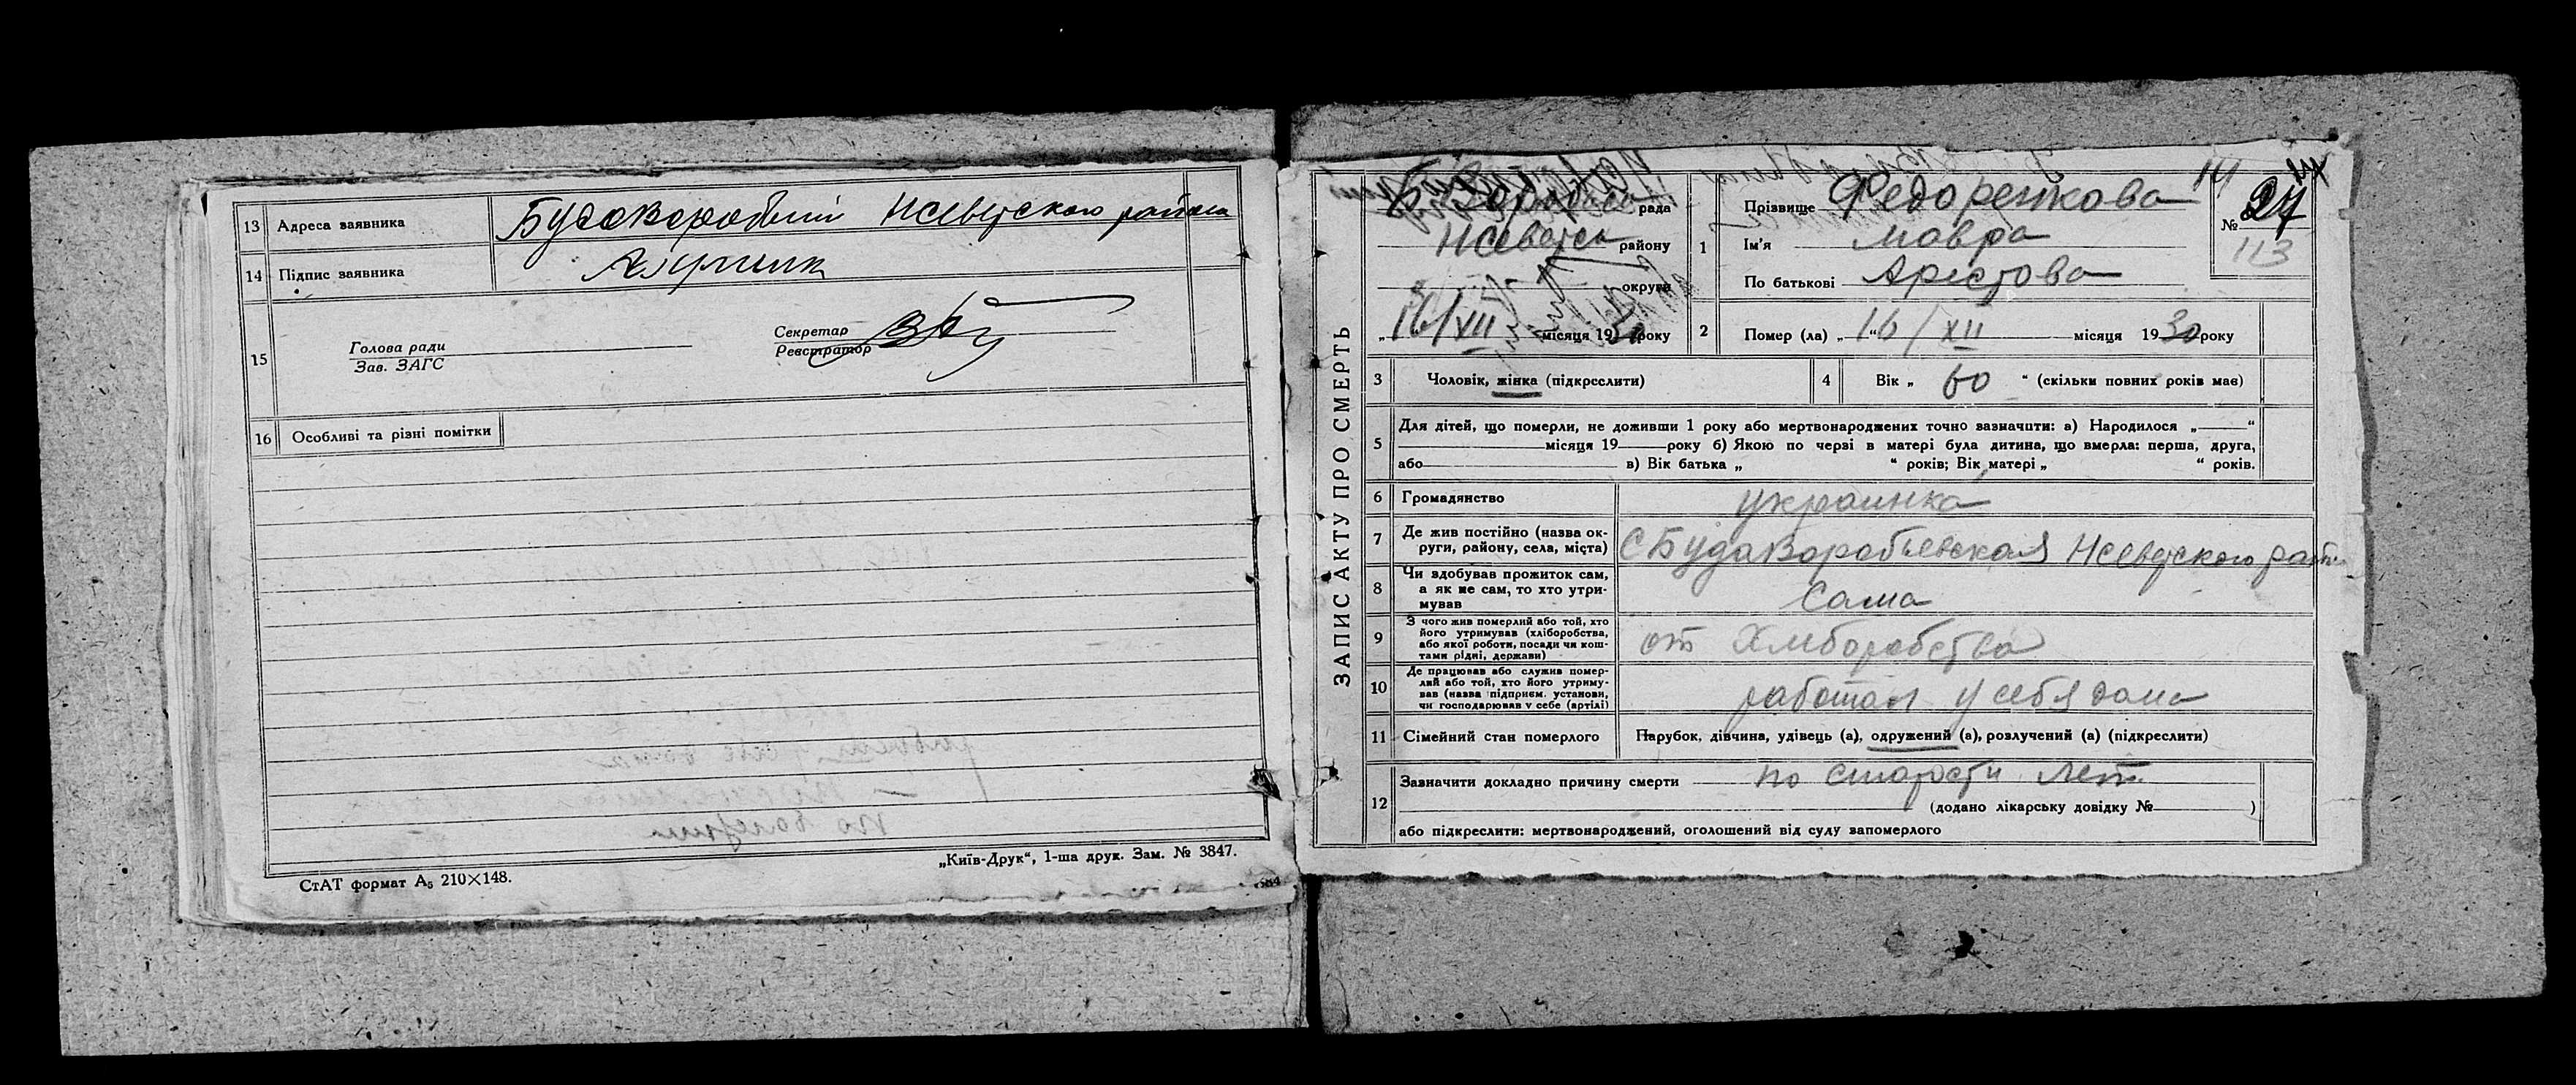 13 Адреса заявника Будаворобьи Нсеверского района
14 Підпис заявника
15 Голова ради
Зав. ЗАГС
Секретар
Реєстратор
16 Особливі та різні помітки
„Київ-Друк“, 1-ша друк. Зам. № 3847.
СтАТ формат А₅ 210×148.
ЗАПИС АКТУ ПРО СМЕРТЬ
рада
району
округи
16/XII місяця 1930 року
1 Прізвище Федоренкова
Ім'я Мавра
По батькові Арістова
№ 27
113
2 Помер (ла) „16/XII місяця 1930 року
3 Чоловік, жінка (підкреслити)
4 Вік „ 60 “ (скільки повних років має)
5 Для дітей, що померли, не доживши 1 року або мертвонароджених точно зазначити: а) Народилося „ “
місяця 19 року б) Якою по черзі в матері була дитина, що вмерла: перша, друга,
або в) Вік батька „ “ років; Вік матері „ “ років.
6 Громадянство украинка
7 Де жив постійно (назва ок-
руги, району, села, міста) С Будаворобьевская Нсеверского район
8 Чи здобував прожиток сам,
а як не сам, то хто утри-
мував Сама
9 З чого жив померлий або той, хто
його утримував (хліборобства,
або якої роботи, посади чи кош-
тами рідні, держави) от Хлиборобства
10 Де працював або служив помер-
лий або той, хто його утриму-
вав (назва підприєм. установи,
чи господарював у себе (артілі) работал у себя дома
11 Сімейний стан померлого Парубок, дівчина, удівець (а), одружений (а), розлучений (а) (підкреслити)
12 Зазначити докладно причину смерти по старости лет
(додано лікарську довідку № )
або підкреслити: мертвонароджений, оголошений від суду запомерлого